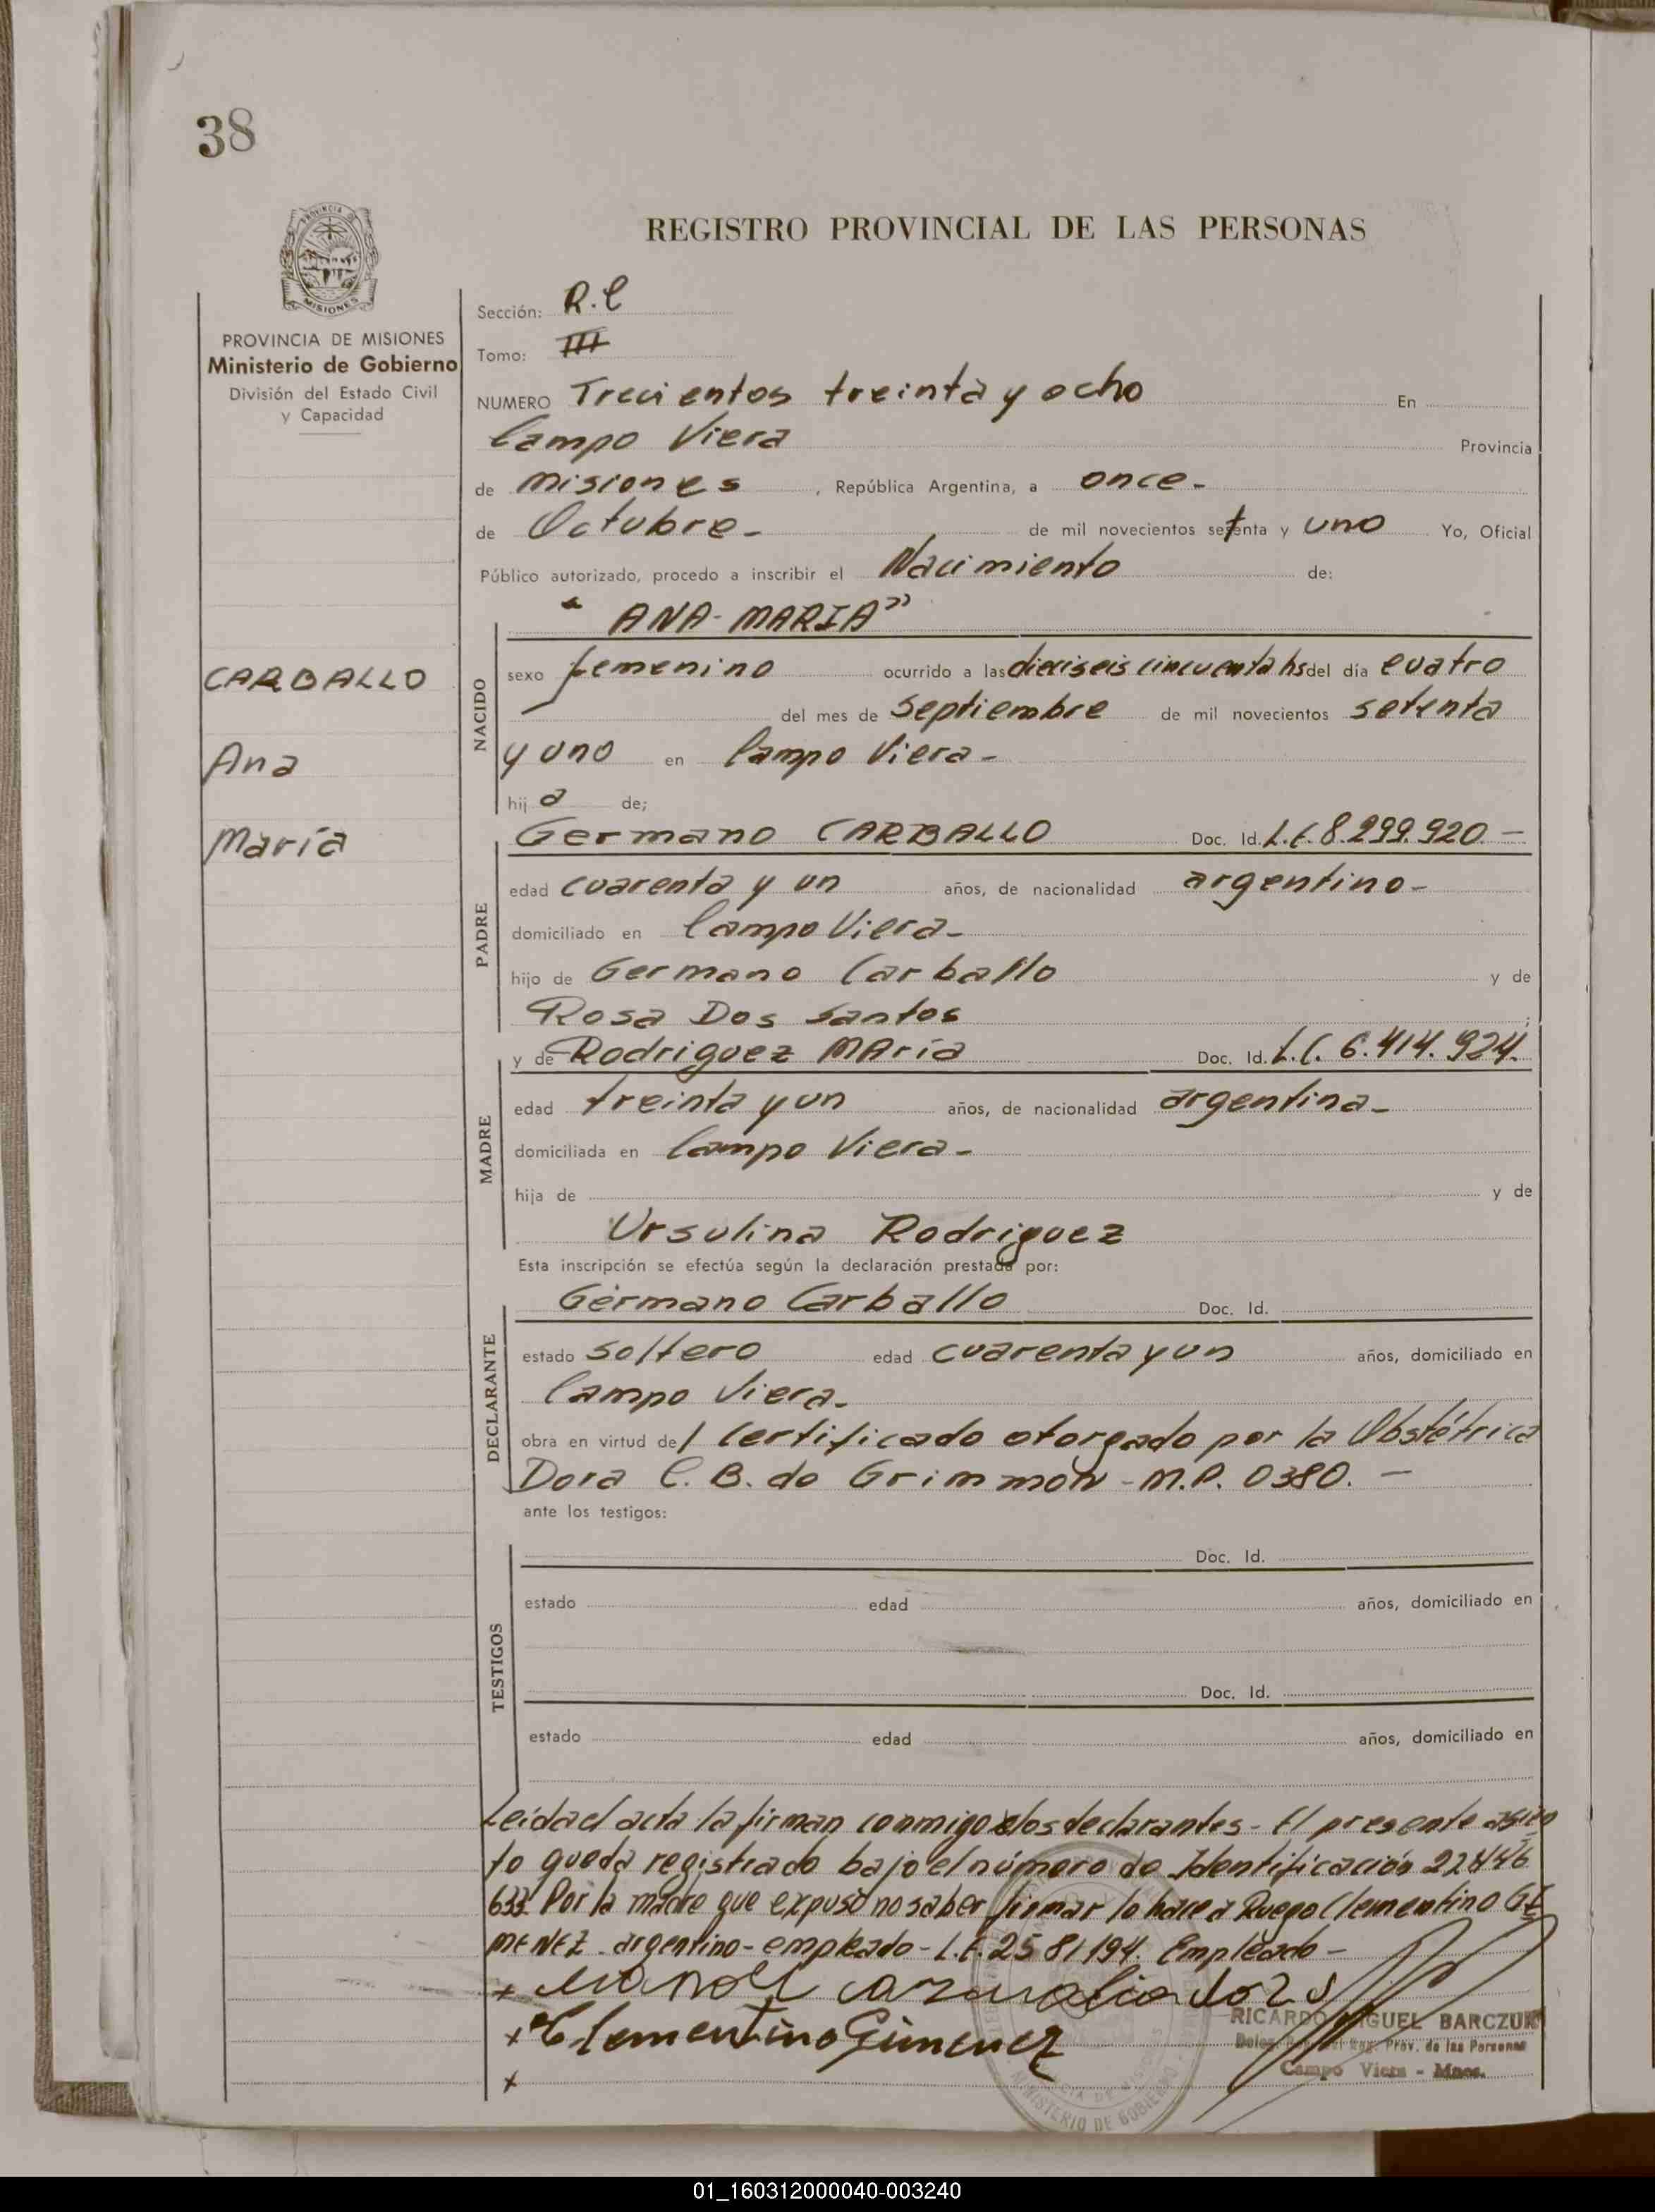 38
REGISTRO PROVINCIAL DE LAS PERSONAS
PROVINCIA DE
MISIONES
PROVINCIA DE MISIONES
Ministerio de Gobierno
División del Estado Civil
y Capacidad
CARBALLO
Ana
María
Sección: R.C
Tomo: III
NUMERO Trecientos treinta y ocho En
Campo Viera Provincia
de misiones, República Argentina, a once-
de Octubre- de mil novecientos setenta y uno Yo, Oficial
Público autorizado, procedo a inscribir el Nacimiento de:
"ANA-MARIA"
NACIDO
sexo femenino ocurrido a las dieciseis cincuenta hs del día cuatro
del mes de Septiembre de mil novecientos setenta
y uno en Campo Viera-
hij a de;
PADRE
Germano CARBALLO Doc. Id. L.E. 8.299.920.-
edad cuarenta y un años, de nacionalidad argentino-
domiciliado en Campo Viera-
hijo de Germano Carballo y de
Rosa Dos Santos ;
MADRE
y de Rodriguez MAría Doc. Id. L.C. 6.414.924.
edad treinta y un años, de nacionalidad argentina-
domiciliada en Campo Viera-
hija de y de
Ursulina Rodriguez
Esta inscripción se efectúa según la declaración prestada por:
DECLARANTE
Germano Carballo Doc. Id.
estado soltero edad cuarenta y un años, domiciliado en
Campo Viera-
obra en virtud del Certificado otorgado por la Obstétrica
Dora C. B. de Grimmon - M.P. 0380.-
ante los testigos:
TESTIGOS
Doc. Id.
estado edad años, domiciliado en
Doc. Id.
estado edad años, domiciliado en
Leida el acta la firman conmigo los declarantes- El presente asien
to queda registrado bajo el número de Identificación 22446
633 Por la madre que expuso no saber firmar lo hace a Ruego Clementino GI
MENEZ- argentino- empleado- L.E. 2581194. Empleado-
+
+ Clementino Gimenez
+
RICARDO MIGUEL BARCZUK
Reg. Prov. de las Personas
Campo Viera - Mnes.
MINISTERIO DE GOBIERNO
01_160312000040-003240